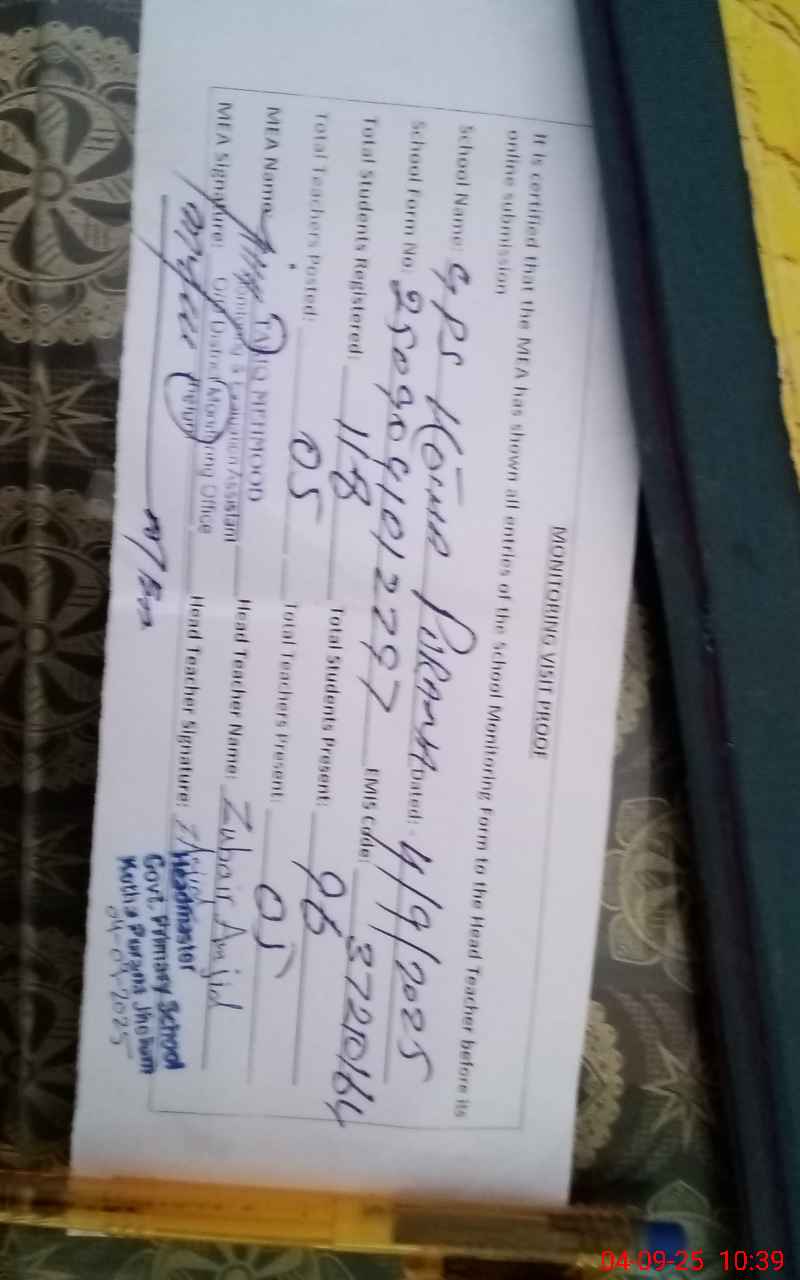 MONITORING VISIT PROOF
It is certified that the MEA has shown all entries of the School Monitoring Form to the Head Teacher before its
online submission
School Name: GPS Dated: - 4/9/2025
School Form No: 250904012297 EMIS Code: 37210164
Total Students Registered: 118 Total Students Present: 96
Total Teachers Posted: 05 Total Teachers Present: 05
MEA Name: TARIQ MEHMOOD Head Teacher Name: Zubair Amjid
Monitoring & Evaluation Assistant
MEA Signature: O/o District Monitoring Office Head Teacher Signature:
Jhelum
Headmaster
Govt. Primary School
Kotha Purana Jhelum
04-09-2025
04-09-25 10:39